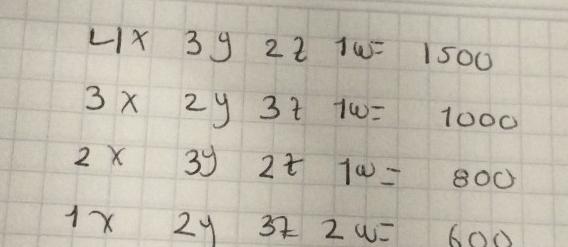 4x 3y 2z 1w= 1500
3x 2y 3z 1w= 1000
2x 3y 2z 1w= 800
1x 2y 3z 2w= 600